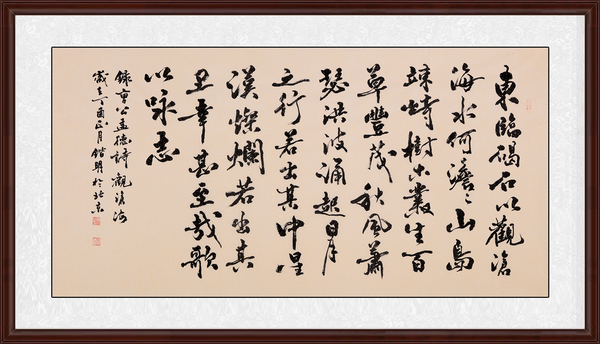 東臨碣石以觀滄
海水何澹々山島
竦峙樹木叢生百
草豐茂秋風蕭
瑟洪波涌起日月
之行若出其中星
漢燦爛若出其
里幸甚至哉歌
以咏志
錄曹公孟德詩觀滄海
歲酉正月於北京